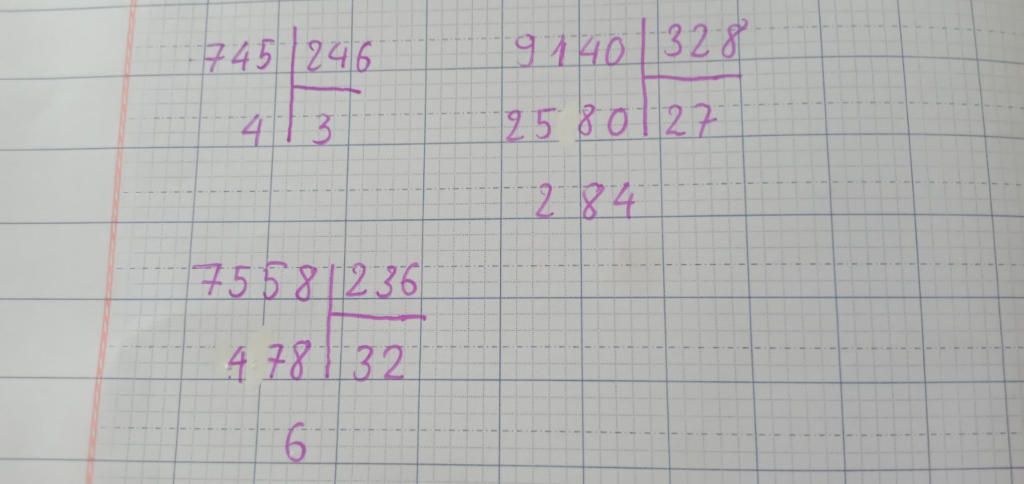 745 246
4 3
9140 328
2580 27
284
7558 236
478 32
6